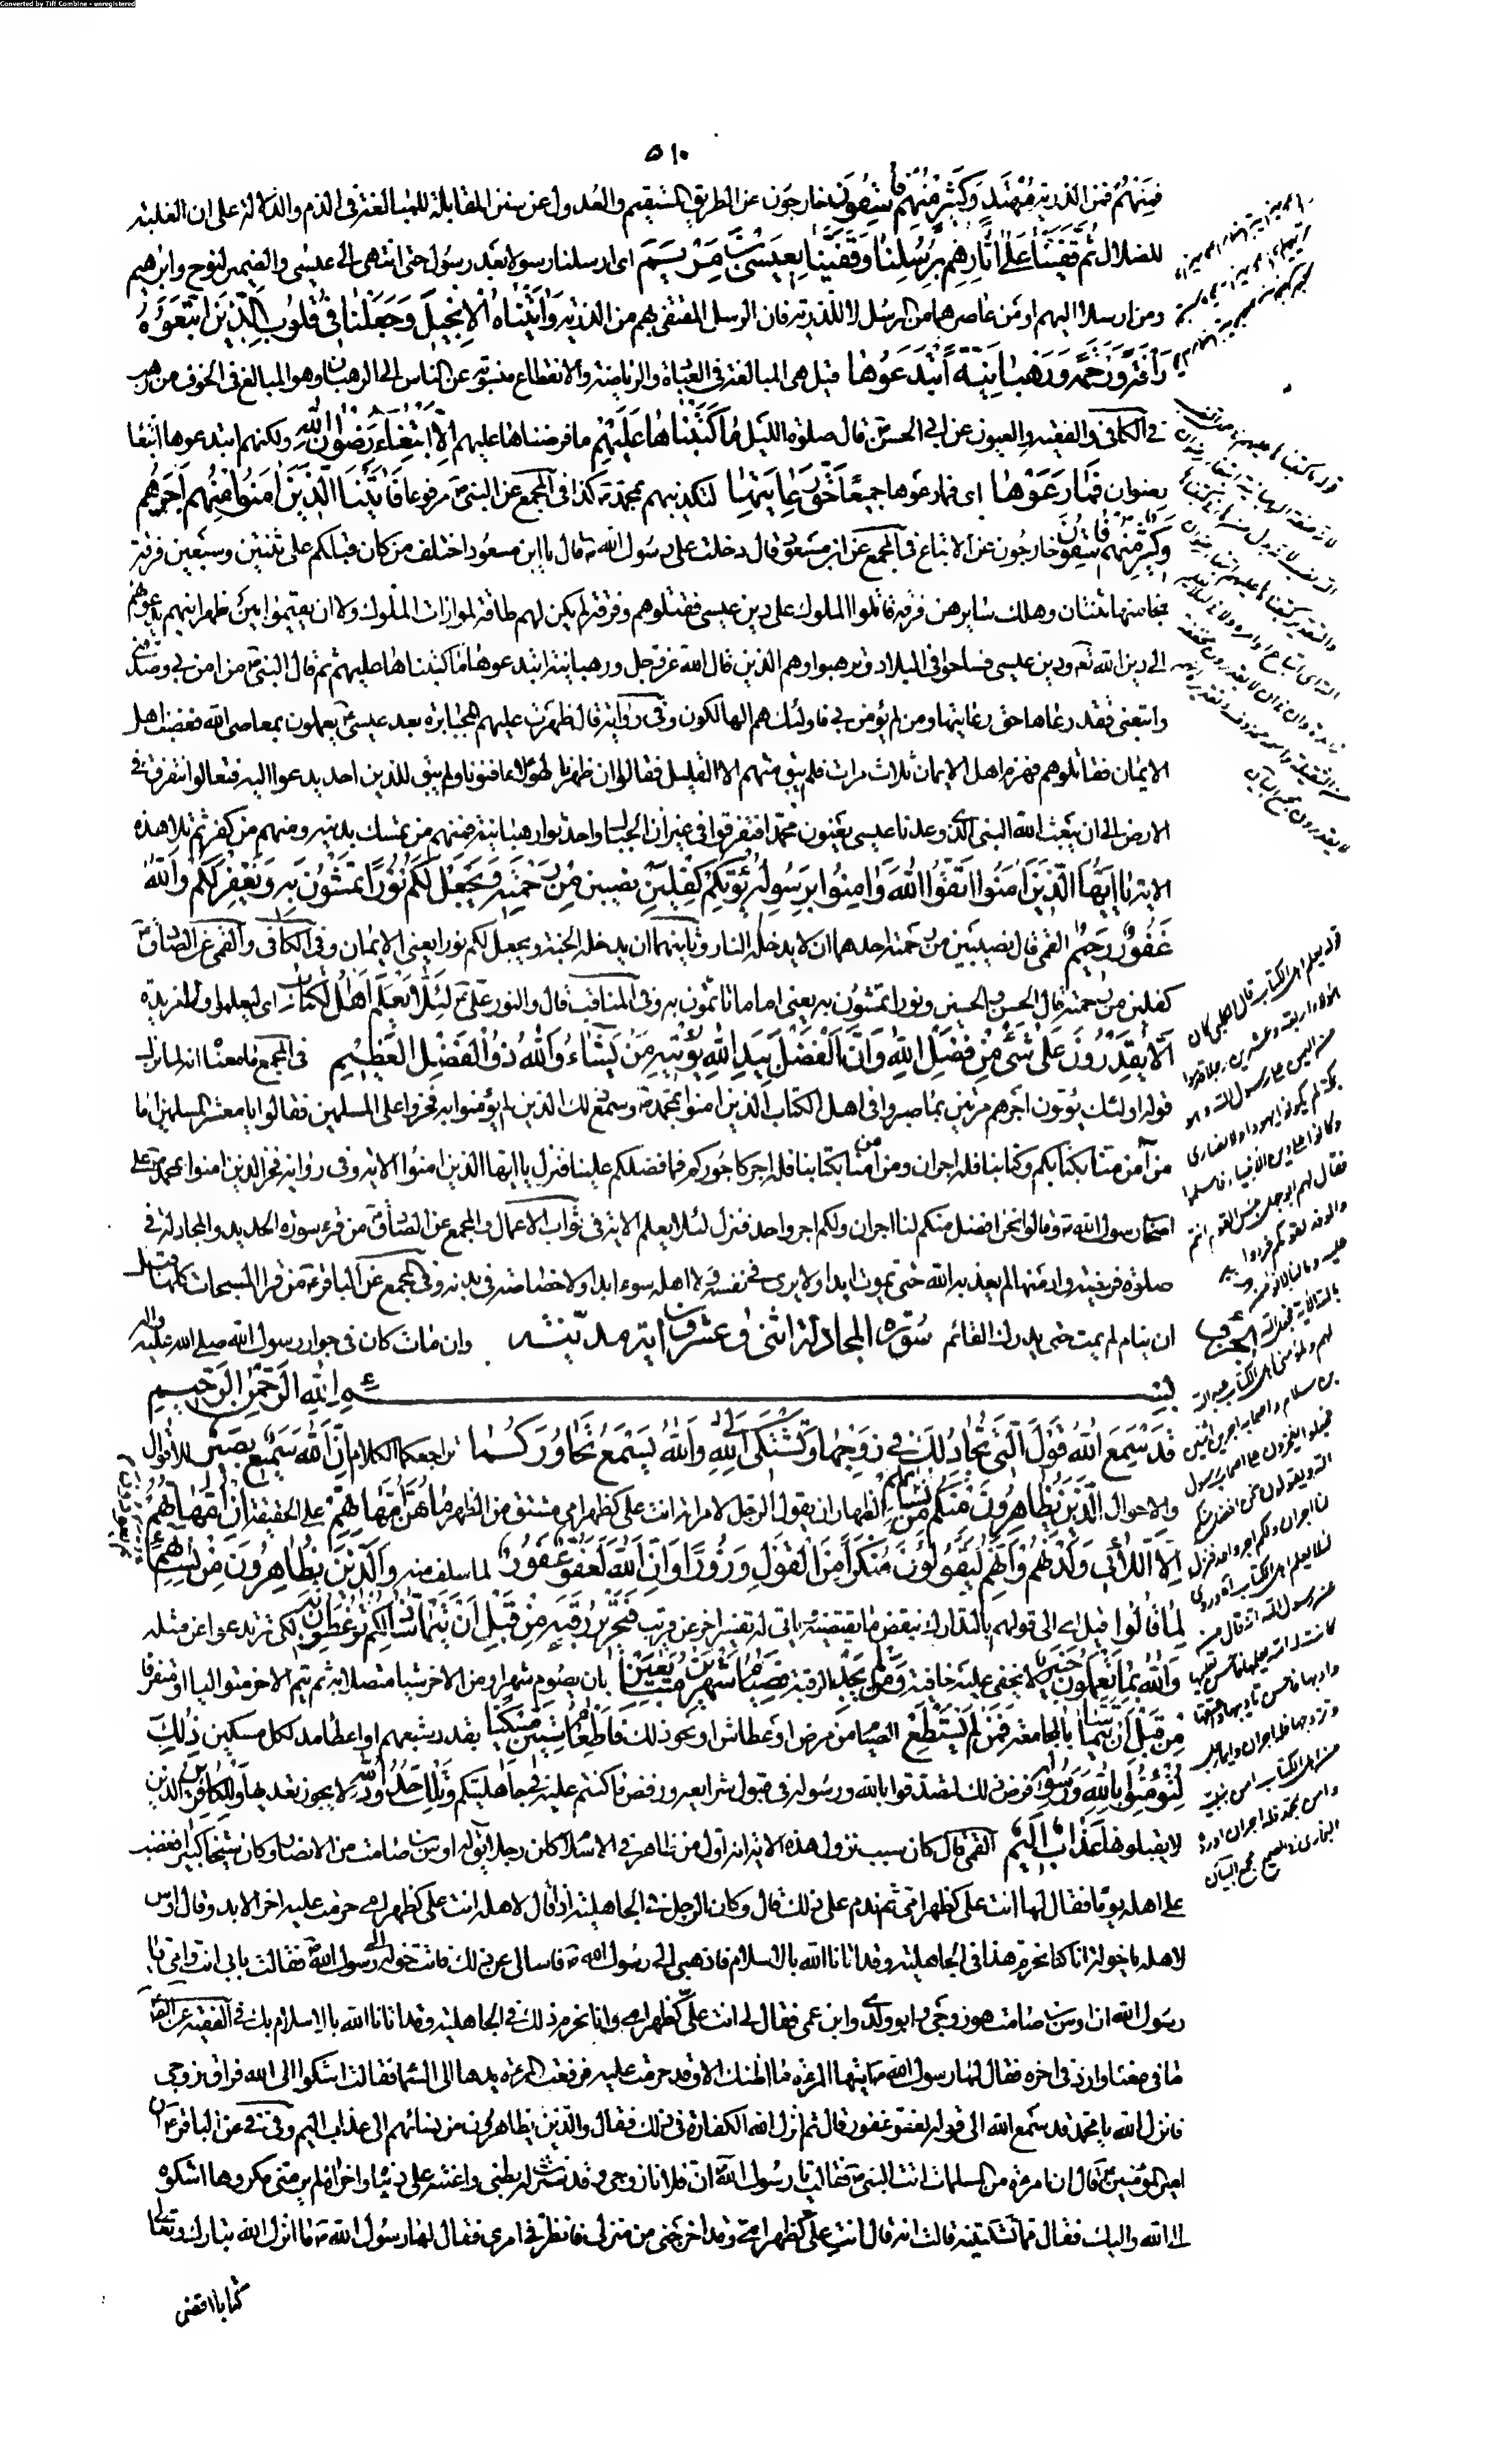 Converted by Tiff Combine - unregistered
٥١٠
فمنهم فمن الذرية مهتد وكثير منهم فاسقون خارجون عن الطريق المستقيم والعدول عن سنن المقابلة للمبالغة في الذم والدلالة على ان الغلبة
للضلال ثم قفينا على اثارهم برسلنا وقفينا بعيسى بن مريم اى ارسلنا رسولا بعد رسول حتى انتهى الى عيسى والضمير لنوح وابرهيم
ومن ارسلا اليهم او من عاصرهما من الرسل لا للذرية فان الرسل المقفى بهم من الذرية واتيناه الانجيل وجعلنا في قلوب الذين اتبعوه
رأفة ورحمة ورهبانية ابتدعوها قيل هى المبالغة في العبادة والرياضة والانقطاع عن الناس منسوبة الى الرهبان وهو المبالغ في الخوف من رهب
في الكافي والفقيه والعيون عن ابى الحسن ع قال صلوة الليل ما كتبناها عليهم ما فرضناها عليهم الا ابتغاء رضوان الله ولكنهم ابتدعوها ابتغاء
رضوان فما رعوها اى فما رعوها جميعا حق رعايتها لتكذيبهم بمحمد ص كذا في المجمع عن النبى ص مرفوعا فاتينا الذين امنوا منهم اجرهم
وكثير منهم فاسقون خارجون عن الاتباع في المجمع عن ابن مسعود قال دخلت على رسول الله ص قال يا ابن مسعود اختلف من كان قبلكم على ثنتين وسبعين فرقة
نجا منها ثنتان وهلك سايرهن فرقة قاتلوا الملوك على دين عيسى فقتلوهم وفرقة لم يكن لهم طاقة لموازات الملوك ولا ان يقيموا بين ظهرانيهم يدعوهم
الى دين الله تع ودين عيسى فساحوا في البلاد وترهبوا وهم الذين قال الله عز وجل ورهبانية ابتدعوها ما كتبناها عليهم ثم قال النبى ص من امن بى وصدقنى
واتبعنى فقد رعاها حق رعايتها ومن لم يؤمن بى فاولئك هم الهالكون وفي رواية قال ظهرت عليهم الجبابرة بعد عيسى ع يعملون بمعاصى الله فغضب اهل
الايمان فقاتلوهم فهزم اهل الايمان ثلاث مرات فلم يبق منهم الا القليل فقالوا ان ظهرنا لهؤلاء افنونا ولم يبق للدين احد يدعوا اليه فتعالوا نتفرق في
الارض الى ان يبعث الله النبى الذى وعدنا عيسى يعنون محمدا فتفرقوا في غيران الجبال واحدثوا رهبانية فمنهم من تمسك بدينه ومنهم من كفر ثم تلا هذه
الاية يا ايها الذين امنوا اتقوا الله وامنوا برسوله يؤتكم كفلين نصيبين من رحمته ويجعل لكم نورا تمشون به ويغفر لكم والله
غفور رحيم القمى قال نصيبين من رحمته احدهما ان لا يدخله النار وثانيهما ان يدخله الجنة ويجعل لكم نورا يعنى الايمان وفي الكافي والقمى عن الصادق ع
كفلين من رحمته قال الحسن والحسين ونورا تمشون به يعنى اماما تأتمون به وفي المناقب قال والنور على ع لئلا يعلم اهل الكتاب اى ليعلموا ولا مزيدة
الا يقدرون على شئ من فضل الله وان الفضل بيد الله يؤتيه من يشاء والله ذو الفضل العظيم في المجمع ما معناه انه لما نزل
قوله اولئك يؤتون اجرهم مرتين بما صبروا في اهل الكتاب الذين امنوا بمحمد ص وسمع ذلك الذين لم يؤمنوا به فخروا على المسلمين فقالوا يا معشر المسلمين اما
من آمن منا بكتابكم وكتابنا فله اجران ومن آمن منا بكتابنا فله اجر كاجوركم فما فضلكم علينا فنزل يا ايها الذين امنوا الاية وفي رواية فخر الذين امنوا بمحمد ص على
اصحاب رسول الله ص وقالوا نحن افضل منكم لنا اجران ولكم اجر واحد فنزل لئلا يعلم الاية في ثواب الاعمال والمجمع عن الصادق ع من قرء سورة الحديد والمجادلة في
صلوة فريضة وادمنها لم يعذبه الله حتى يموت ابدا ولا يرى في نفسه ولا اهله سوء ابدا ولا خصاصة في بدنه وفي المجمع عن الباقر ع من قرأ المسبحات كلها قبل
ان ينام لم يمت حتى يدرك القائم سورة المجادلة اثنى وعشرون اية مدنية وان مات كان في جوار رسول الله صلى الله عليه واله
بسم الله الرحمن الرحيم
قد سمع الله قول التى تجادلك في زوجها وتشتكى الى الله والله يسمع تحاوركما تراجعكما الكلام ان الله سميع بصير للاقوال
والاحوال الذين يظاهرون منكم من نسائهم الظهار ان يقول الرجل لامرأته انت على كظهر امى مشتق من الظهر ما هن امهاتهم على الحقيقة ان امهاتهم
الا اللائى ولدنهم وانهم ليقولون منكرا من القول وزورا وان الله لعفو غفور لما سلف منه والذين يظاهرون من نسائهم ثم يعودون
لما قالوا قيل اى الى قولهم بالتدارك بنقض ما يقتضيه ياتى له تفسير اخر عن قريب فتحرير رقبة من قبل ان يتماسا ذلكم توعظون به لكى ترتدعوا عن مثله
والله بما تعملون خبير لا يخفى عليه خافية فمن لم يجد الرقبة فصيام شهرين متتابعين بان يصوم شهرا ومن الاخر شيئا متصلا به ثم يتم الاخر متواليا او متفرقا
من قبل ان يتماسا بالمجامعة فمن لم يستطع الصيام من مرض او عطاش او نحو ذلك فاطعام ستين مسكينا بقدر شبعهم او اعطاء مد لكل مسكين ذلك
لتؤمنوا بالله ورسوله فرض ذلك لتصدقوا بالله ورسوله في قبول شرايعه ورفض ما كنتم عليه في جاهليتكم وتلك حدود الله لا يجوز تعديها وللكافرين الذين
لا يقبلونها عذاب اليم القمى قال كان سبب نزول هذه الاية انه اول من ظاهر في الاسلام كان رجل يقال له اوس بن صامت من الانصار وكان شيخا كبيرا فغضب
على اهله يوما فقال لها انت على كظهر امى ثم ندم على ذلك قال وكان الرجل في الجاهلية اذا قال لاهله انت على كظهر امى حرمت عليه اخر الابد وقال اوس
لاهله يا خولة انا كنا نحرم هذا في الجاهلية وقد اتانا الله بالاسلام فاذهبى الى رسول الله ص فاسالى عن ذلك فاتت خولة الى رسول الله ص فقالت بابى انت وامى يا
رسول الله ان اوس بن صامت هو زوجى وابو ولدى وابن عمى فقال لى انت على كظهر امى وانا نحرم ذلك في الجاهلية وقد اتانا الله بالاسلام بك في الفقيه عن الصادق
ما في معناه وزاد في اخره فقال لها رسول الله ص ايتها المرءة ما اظنك الا وقد حرمت عليه فرفعت المرءة يدها الى السماء فقالت اشكوا الى الله فراق زوجى
فانزل الله يا محمد قد سمع الله الى قوله لعفو غفور قال ثم انزل الله الكفارة في ذلك فقال والذين يظاهرون من نسائهم الى عذاب اليم وفي في عن الباقر ع ان
امير المؤمنين ع قال ان امرءة من المسلمات اتت النبى ص فقالت يا رسول الله ان فلانا زوجى وقد نثرت له بطنى واعنته على دنياه واخرته لم ير منى مكروها اشكوه
الى الله واليك فقال فما تشكينه قالت انه قال انت على كظهر امى وقد اخرجنى من منزلى فانظر في امرى فقال لها رسول الله ص ما انزل الله تبارك وتعالى
كتابا اقضى
قوله ليعلم اهل الكتاب قال الكلبى كان
هؤلاء اربعة وعشرين رجلا قدموا
من اليمن على رسول الله وهو
بمكة لم يكونوا يهودا ولا نصارى
وكانوا على دين الانبياء فاسلموا
فقال لهم ابو جهل بئس القوم انتم
والوفد لقومكم فردوا
عليه وما لنا لا نؤمن
بالله الاية فجعل الله
لهم ولمؤمنى اهل الكتاب عبد الله
بن سلام واصحابه اجرين اثنين
فجعلوا يفخرون على اصحاب رسول
الله ويقولون نحن افضل منكم
لنا اجران ولكم اجر واحد فنزل
لئلا يعلم اهل الكتاب اه وروى
عن رسول الله انه قال من
كانت له امة فعلمها فاحسن تعليمها
وادبها فاحسن تاديبها واعتقها
وتزوجها فله اجران وايما رجل
من اهل الكتاب امن بنبيه
وامن بمحمد فله اجران اورده
البخارى في الصحيح مجمع البيان